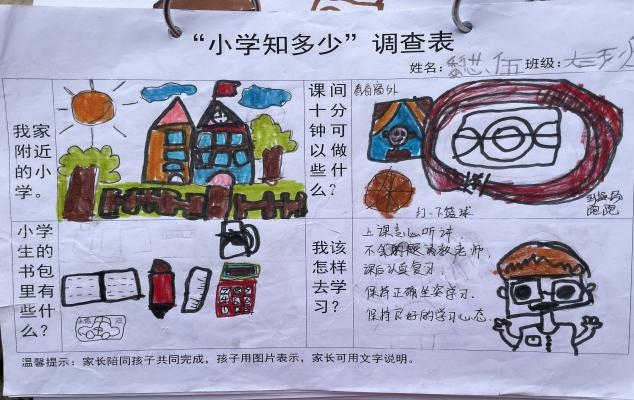 “小学知多少”调查表
姓名： 伍 班级：大
我家
附近
的小
学。
课间
十分
钟可
以做
些什
么？
看看窗外
打一下篮球
到操场
跑跑
小学
生的
书包
里有
些什
么？
我该
怎样
去学
习？
上课专心听讲.
不会的题请教老师.
课后认真复习.
保持正确坐姿学习.
保持良好的学习心态.
温馨提示：家长陪同孩子共同完成，孩子用图片表示，家长可用文字说明。